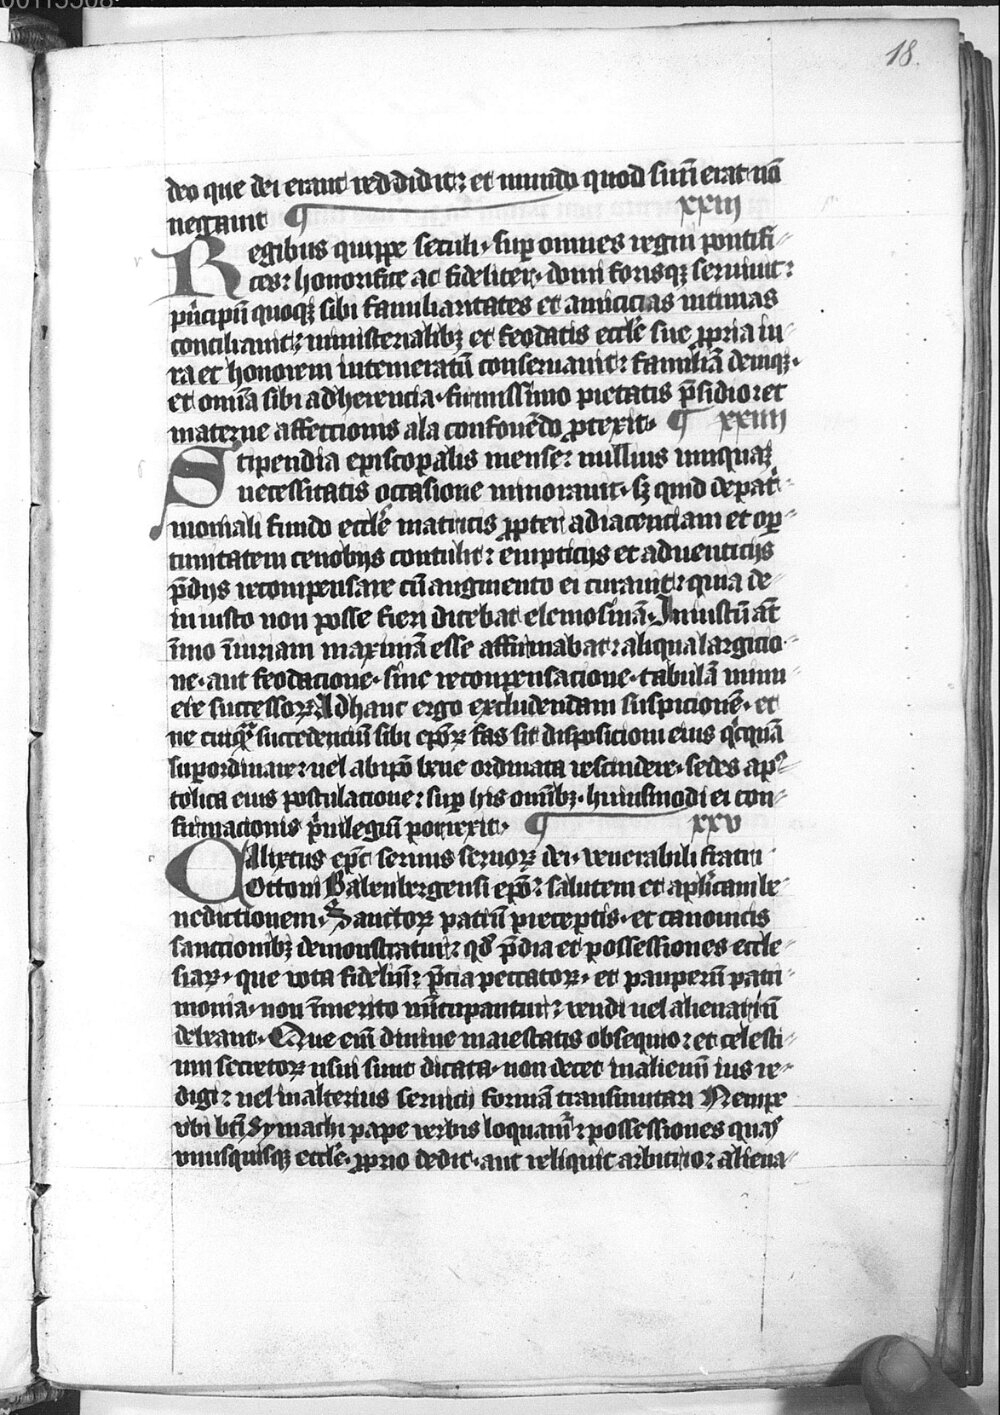 00113508
18.
deo que dei erant reddidit: et mundo quod suū erat nō
negauit ¶ xxiij
Regibus quippe seculi· sup omnes regni pontifi-
ces: honorifice ac fideliter· domi forisqꝫ seruiuit:
pⁱncipū quoqꝫ sibi familiaritates et amicicias intimas
conciliauit: ministerialibꝫ et feodatis eccłe sue ꝓpria iu-
ra et honorem intemeratū conseruauit: familiā deniqꝫ·
et omīa sibi adherencia· firmissimo pietatis p̄sidio: et
materne affectionis ala confouēdo ꝓtexit· ¶ xxiiij
Stipendia episcopalis mense: nullius vnquaꝫ
necessitatis occasione minorauit· sꝫ quid de patⁱ-
moniali fundo eccłe matricis ꝓpter adiacenciam et opꝑ-
tunitatem cenobijs contulit: empticijs et aduenticijs
p̄dijs recompensare cū augmento ei curauit: quia de-
iniusto non posse fieri dicebat elemosinā· Iniustū at̄
īmo īiuriam maximā esse affirmabat: aliqua largicio-
ne· aut feodacione· sine recompensacione· tabulā minu-
ere successorꝫ Ad hanc ergo excludendam suspicionē· et
ne cuiqᵃꝫ succedenciū sibi ep̄orꝫ fas sit disposicioni eius qⁱcquā
supordinare: uel ab ip̄o bene ordinata rescindere· sedes apˢ-
tolica eius postulacione: sup his omībꝫ· huiusmodi ei con-
firmacionis pⁱuilegiū porrexit· ¶ xxv
Calixtus ep̄c seruus seruorꝫ dei· venerabili fratri
Ottoni Babenbergensi ep̄o: salutem et apl̄icam be-
nedictionem· Sanctorꝫ patrū preceptis· et canonicis
sanctionibꝫ demonstratur: qđ p̄dia et possessiones eccle-
siaꝝ· que vota fideliū: p̄cia peccatorꝫ· et pauperū patri-
monia· non īmerito nūcupantur: vendi uel alienari nō
debeant· Que em̄ diuine maiestatis obsequio: et celesti-
um secretorꝫ usui sunt dicata· non decet in alienū ius re-
digi: uel in alterius seruicij formā transmutari Nempe
vbi bt̄i Symachi pape verbis loquam̄: possessiones quas
vnusquisqꝫ eccłe· ꝓprio dedit· aut reliquit arbitrio: aliena-